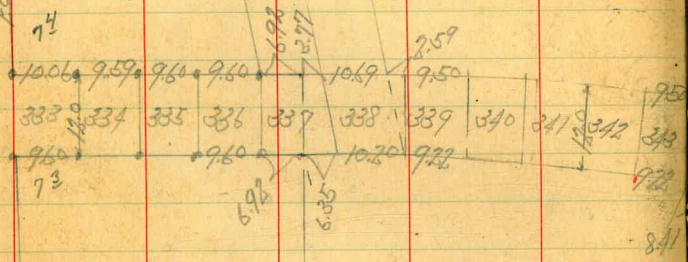 7 4
6.92 3.77 2.59
10.06 9.59 9.60 9.60 10.69 9.50 9.50
333 120 334 335 336 337 338 339 340 341 120 342 343
9.60 9.60 10.20 9.22 9.22
7 3
6.92 6.35
8.41